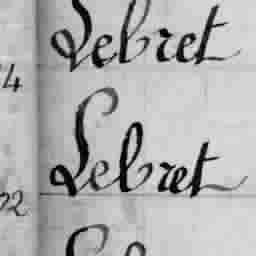 Lebret
4
Lebret
02